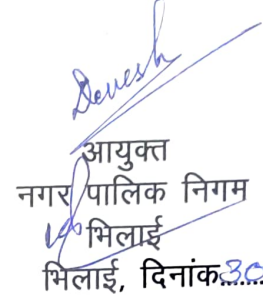 Devesh
आयुक्त
नगर पालिक निगम
भिलाई
भिलाई, दिनांक 30.......